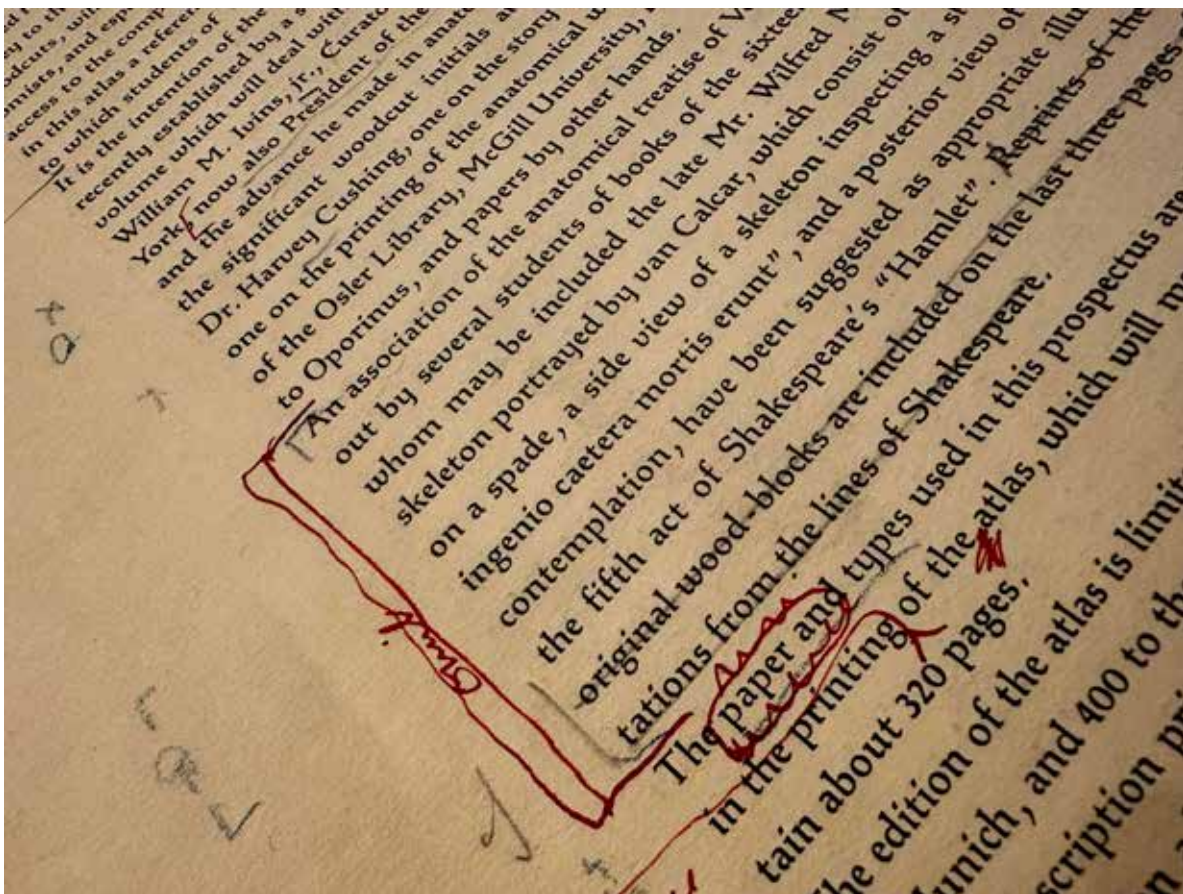 access to the comp
in this atlas a referen
to which students of
It is the intention of the
recently established by a s
volume which will deal with
William M. Ivins, jr., Curato
York, now also President of the
and the advance he made in anato
the significant woodcut initials
Dr. Harvey Cushing, one on the story
one on the printing of the anatomical w
of the Osler Library, McGill University,
to Oporinus, and papers by other hands.
An association of the anatomical treatise of V
out by several students of books of the sixtee
whom may be included the late Mr. Wilfred M
skeleton portrayed by van Calcar, which consist of
on a spade, a side view of a skeleton inspecting a s
ingenio caetera mortis erunt", and a posterior view of
contemplation, have been suggested as appropriate illu
the fifth act of Shakespeare's "Hamlet". Reprints of the
original wood-blocks are included on the last three pages
tations from the lines of Shakespeare.
The paper and types used in this prospectus are
in the printing of the atlas, which will
tain about 320 pages.
he edition of the atlas is limit
unich, and 400 to the
cription pri
Omit